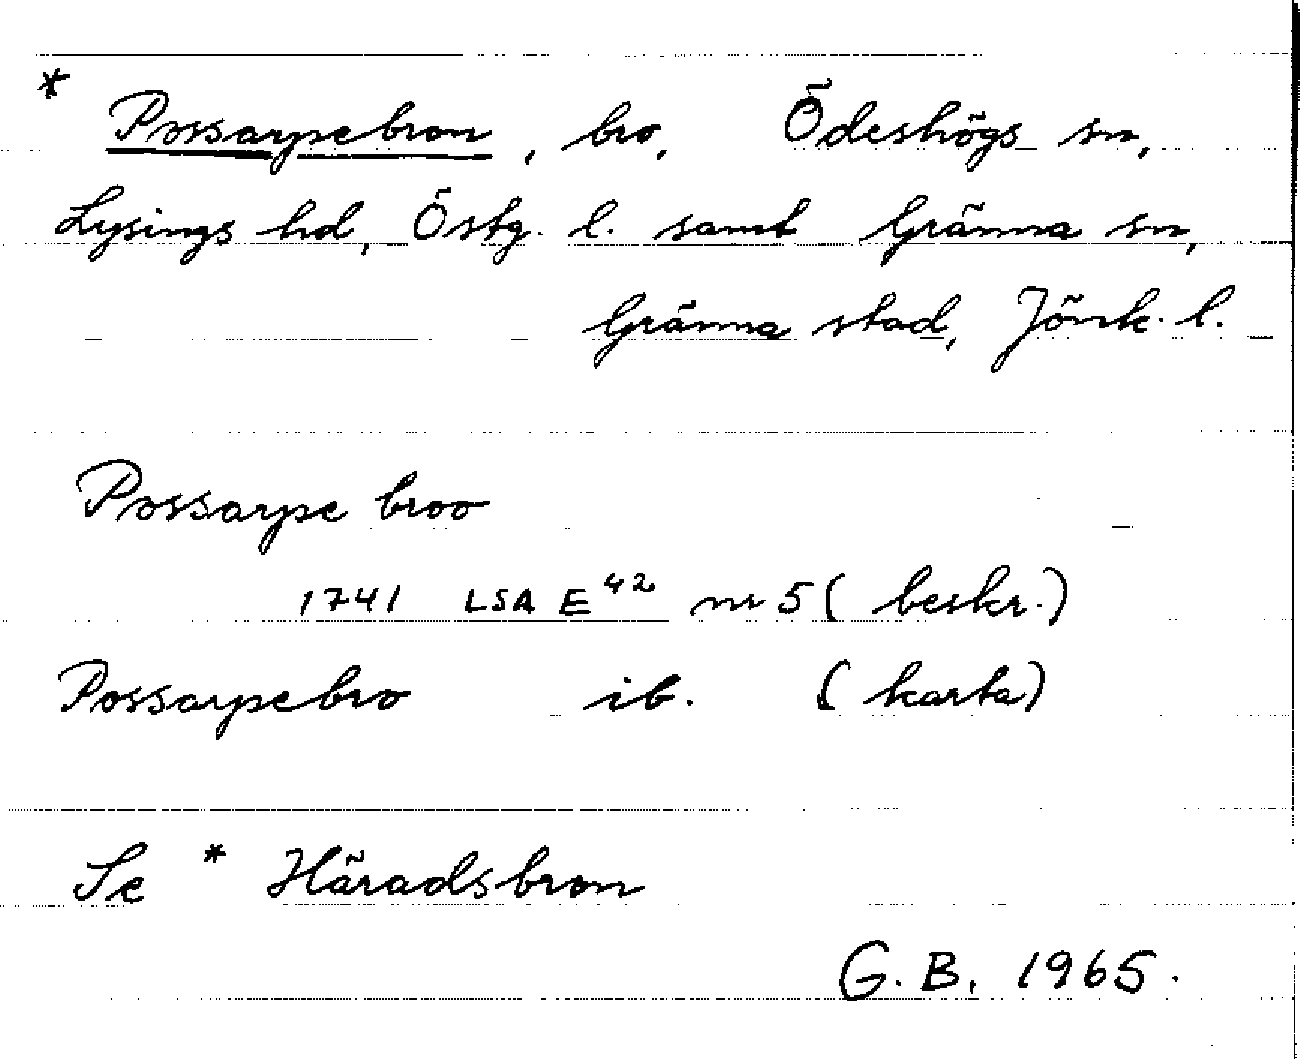 * Possarpebron, bro, Ödeshögs sn,
Lysings hd, Östg. l. samt Gränna sn,
Gränna stad, Jönk. l.
Possarpe broo
1741 LSA E⁴² nr 5 (beskr.)
Possarpebro ib. (karta)
Se * Häradsbron
G. B. 1965.